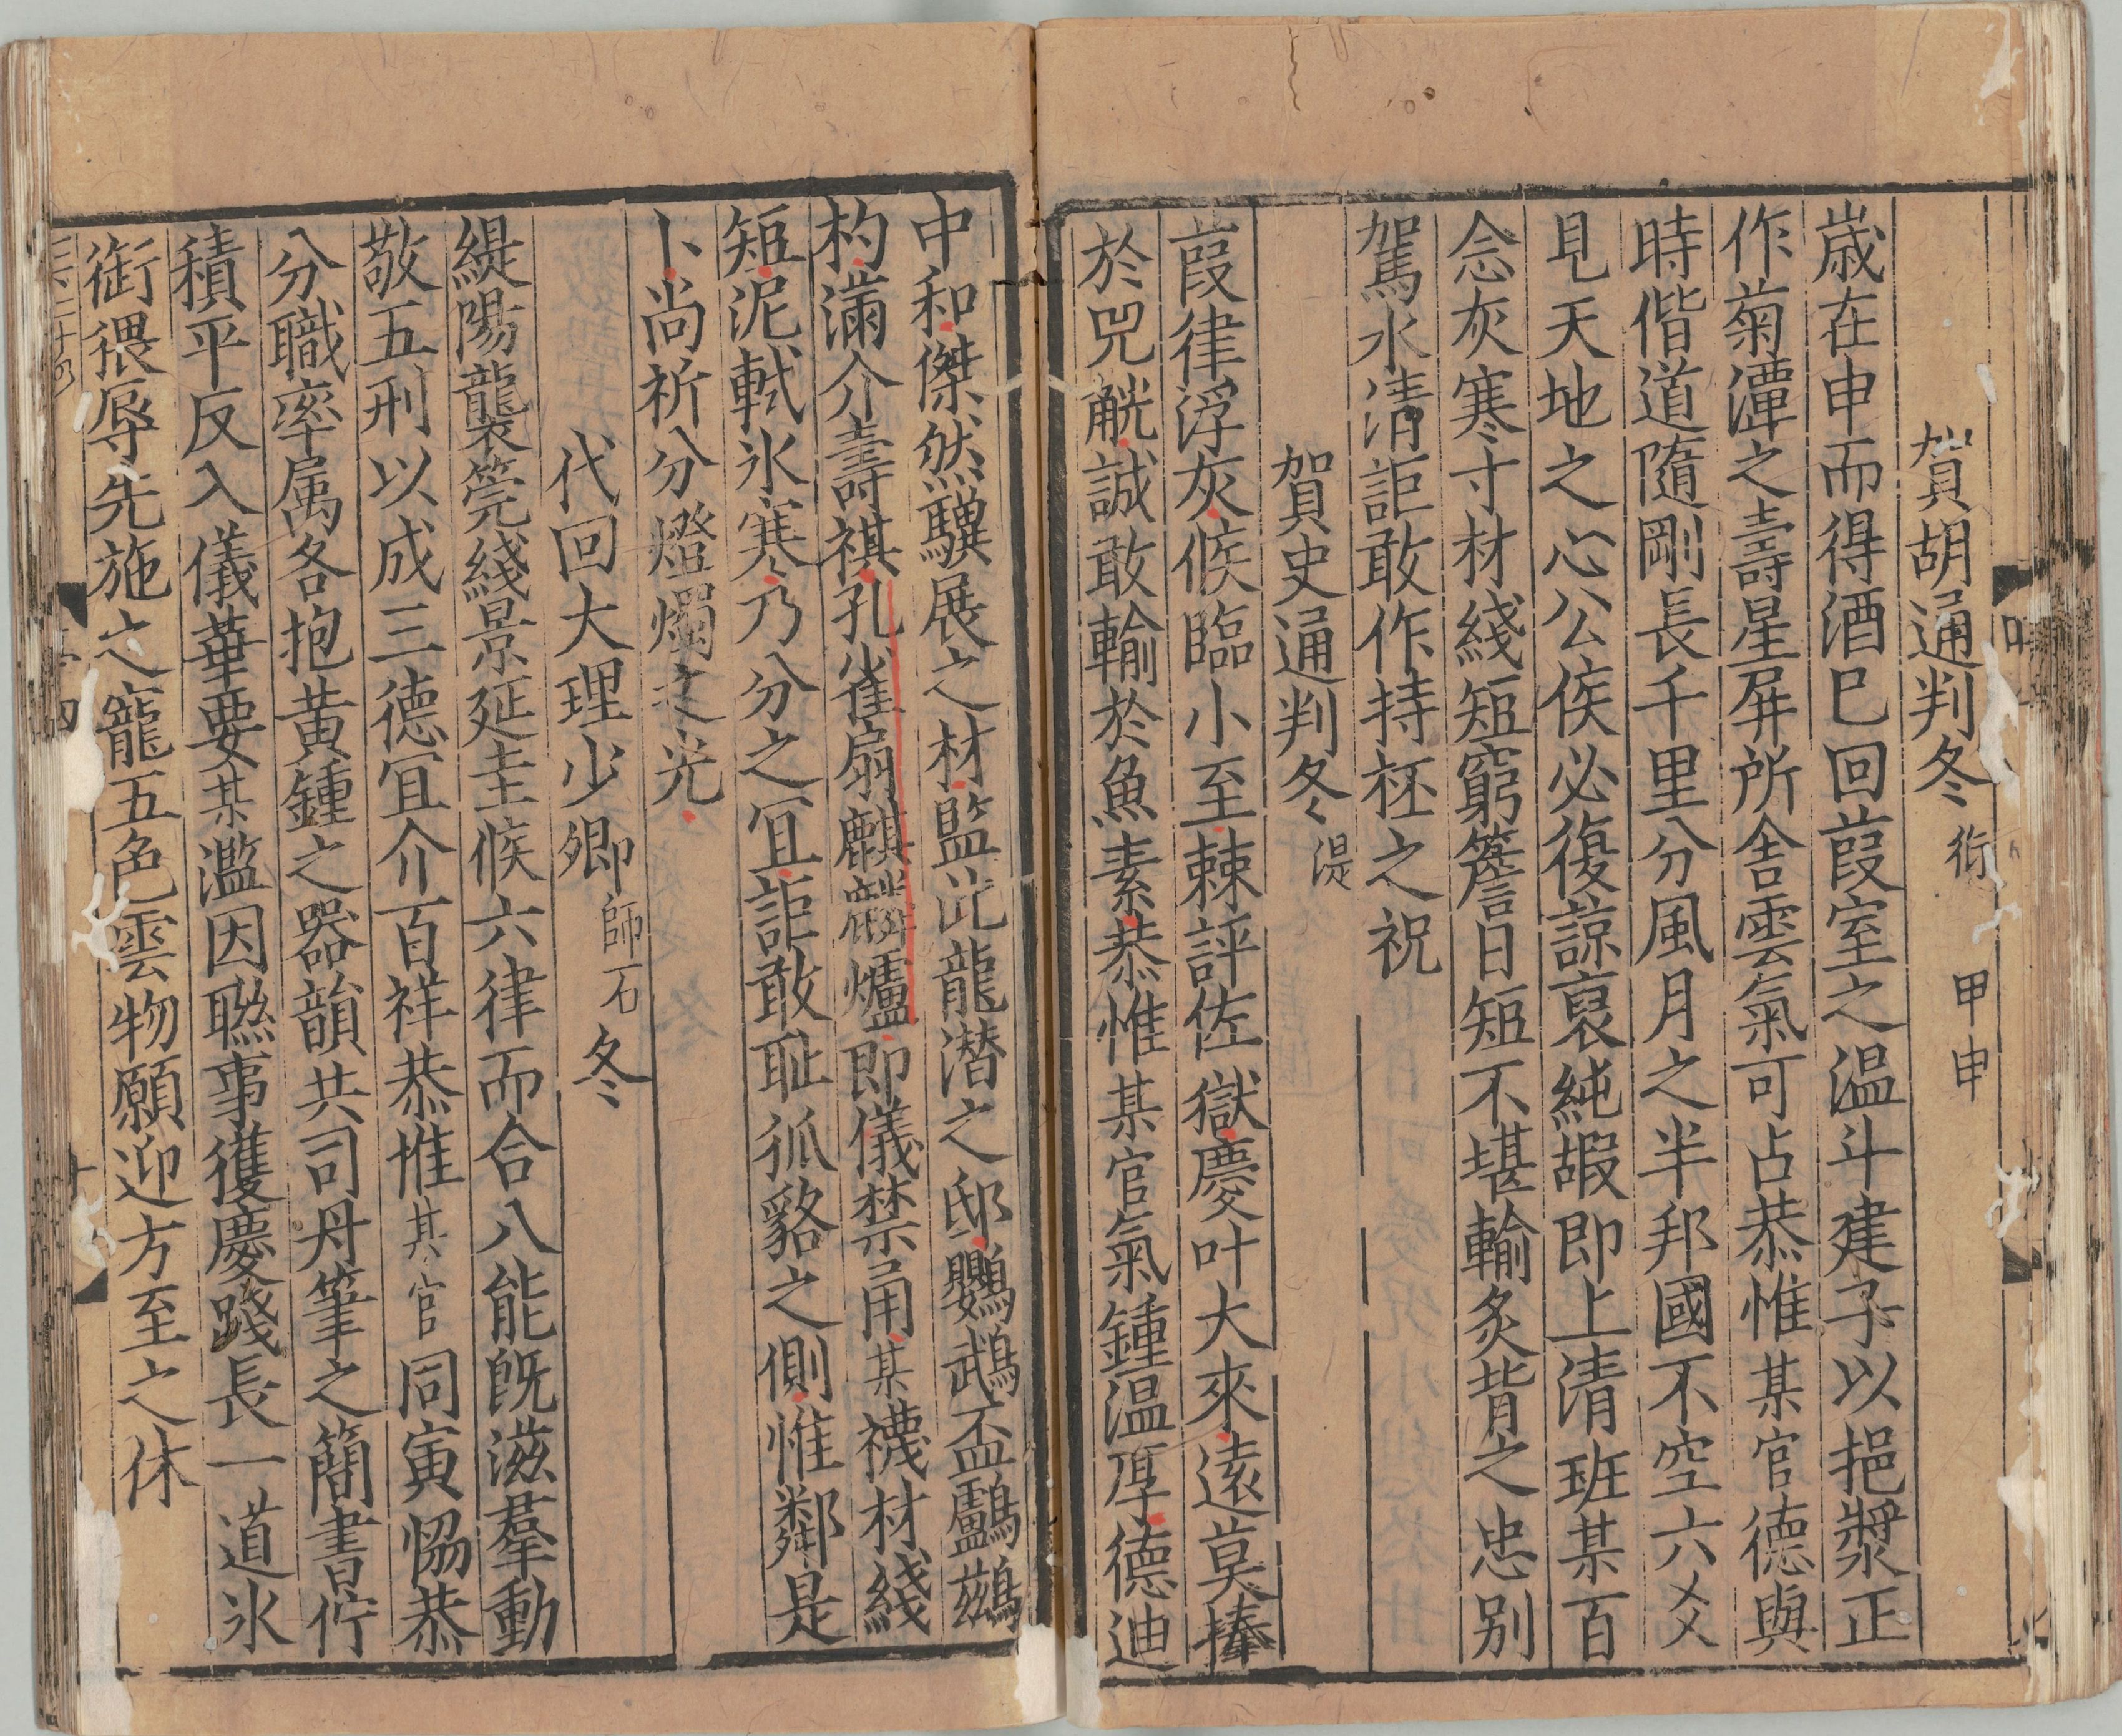 賀胡通判冬 衍 甲申
歳在申而得酒巳回葭室之温斗建子以挹漿正
作菊潭之壽星屏所舎雲氣可占恭惟某官德與
時偕道隨剛長千里分風月之半邦國不空六爻
見天地之心公侯必復諒裒純嘏即上清班某百
念灰寒寸材綫短窮簷日短不堪輸炙背之忠別
駕水清詎敢作持柸之祝
賀史通判冬 湜
葭律浮灰候臨小至棘評佐獄慶叶大來逺莫捧
於兕觥誠敢輸於魚素恭惟某官氣鍾温厚德迪
中和傑然驥展之材監此龍潜之邸鸚鵡盃鸕鷀
杓滿介壽祺孔雀扇麒麟爐即儀禁甬某襪材綫
短泥軾氷寒乃分之冝詎敢耻狐貉之側惟鄰是
卜尚祈分燈燭之光
代回大理少卿師石冬
緹陽襲筦綫景延圭候六律而合八能旣滋羣動
敬五刑以成三德冝介百祥恭惟某官同寅恊恭
分職率属各抱黃鍾之器韻共司丹筆之簡書佇
積平反入儀華要某濫因聮事獲慶踐長一道氷
銜猥辱先施之寵五色雲物願迎方至之休